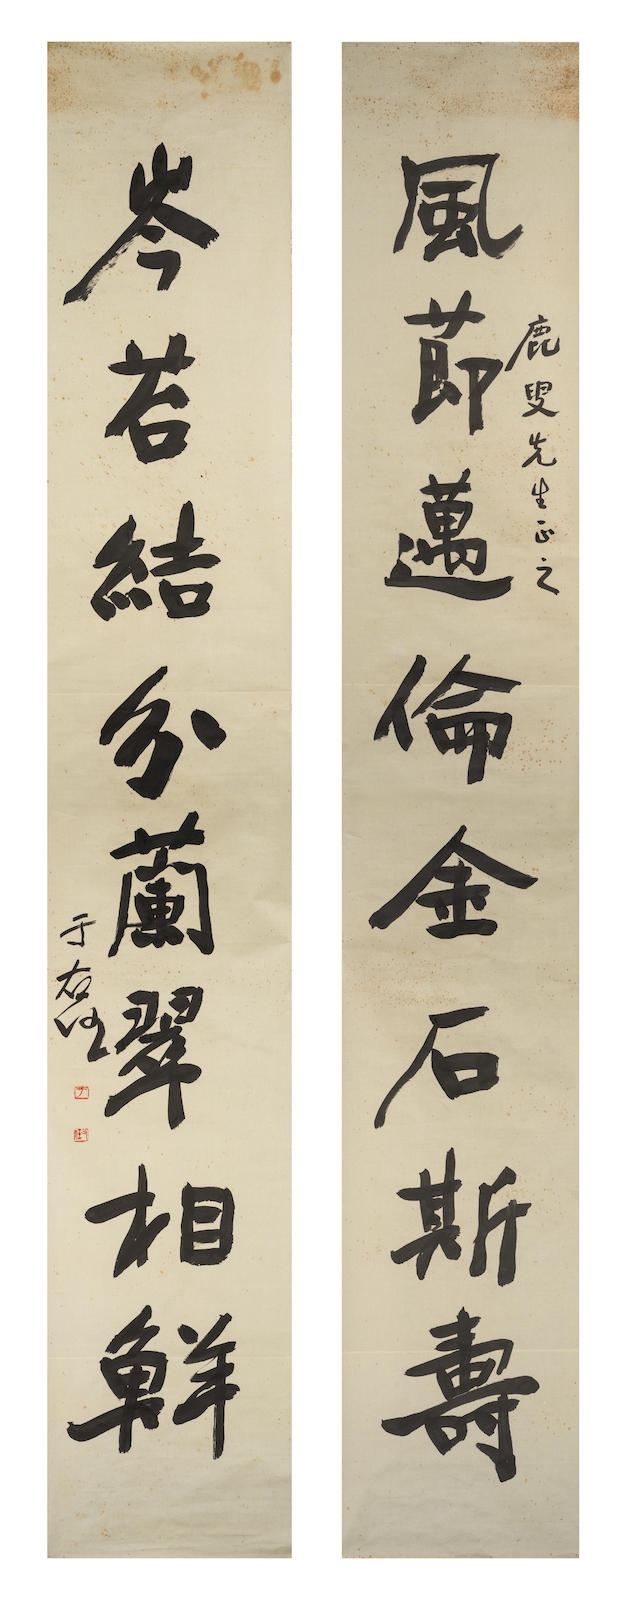 鹿叟先生正之
風節邁倫金石斯壽
岑若結分蘭翠相鮮
于右任